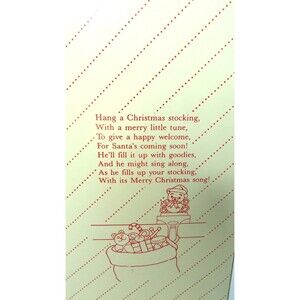 Hang a Christmas stocking,
With a merry little tune,
To give a happy welcome,
For Santa's coming soon!
He'll fill it up with goodies,
And he might sing along,
As he fills up your stocking,
With its Merry Christmas song!